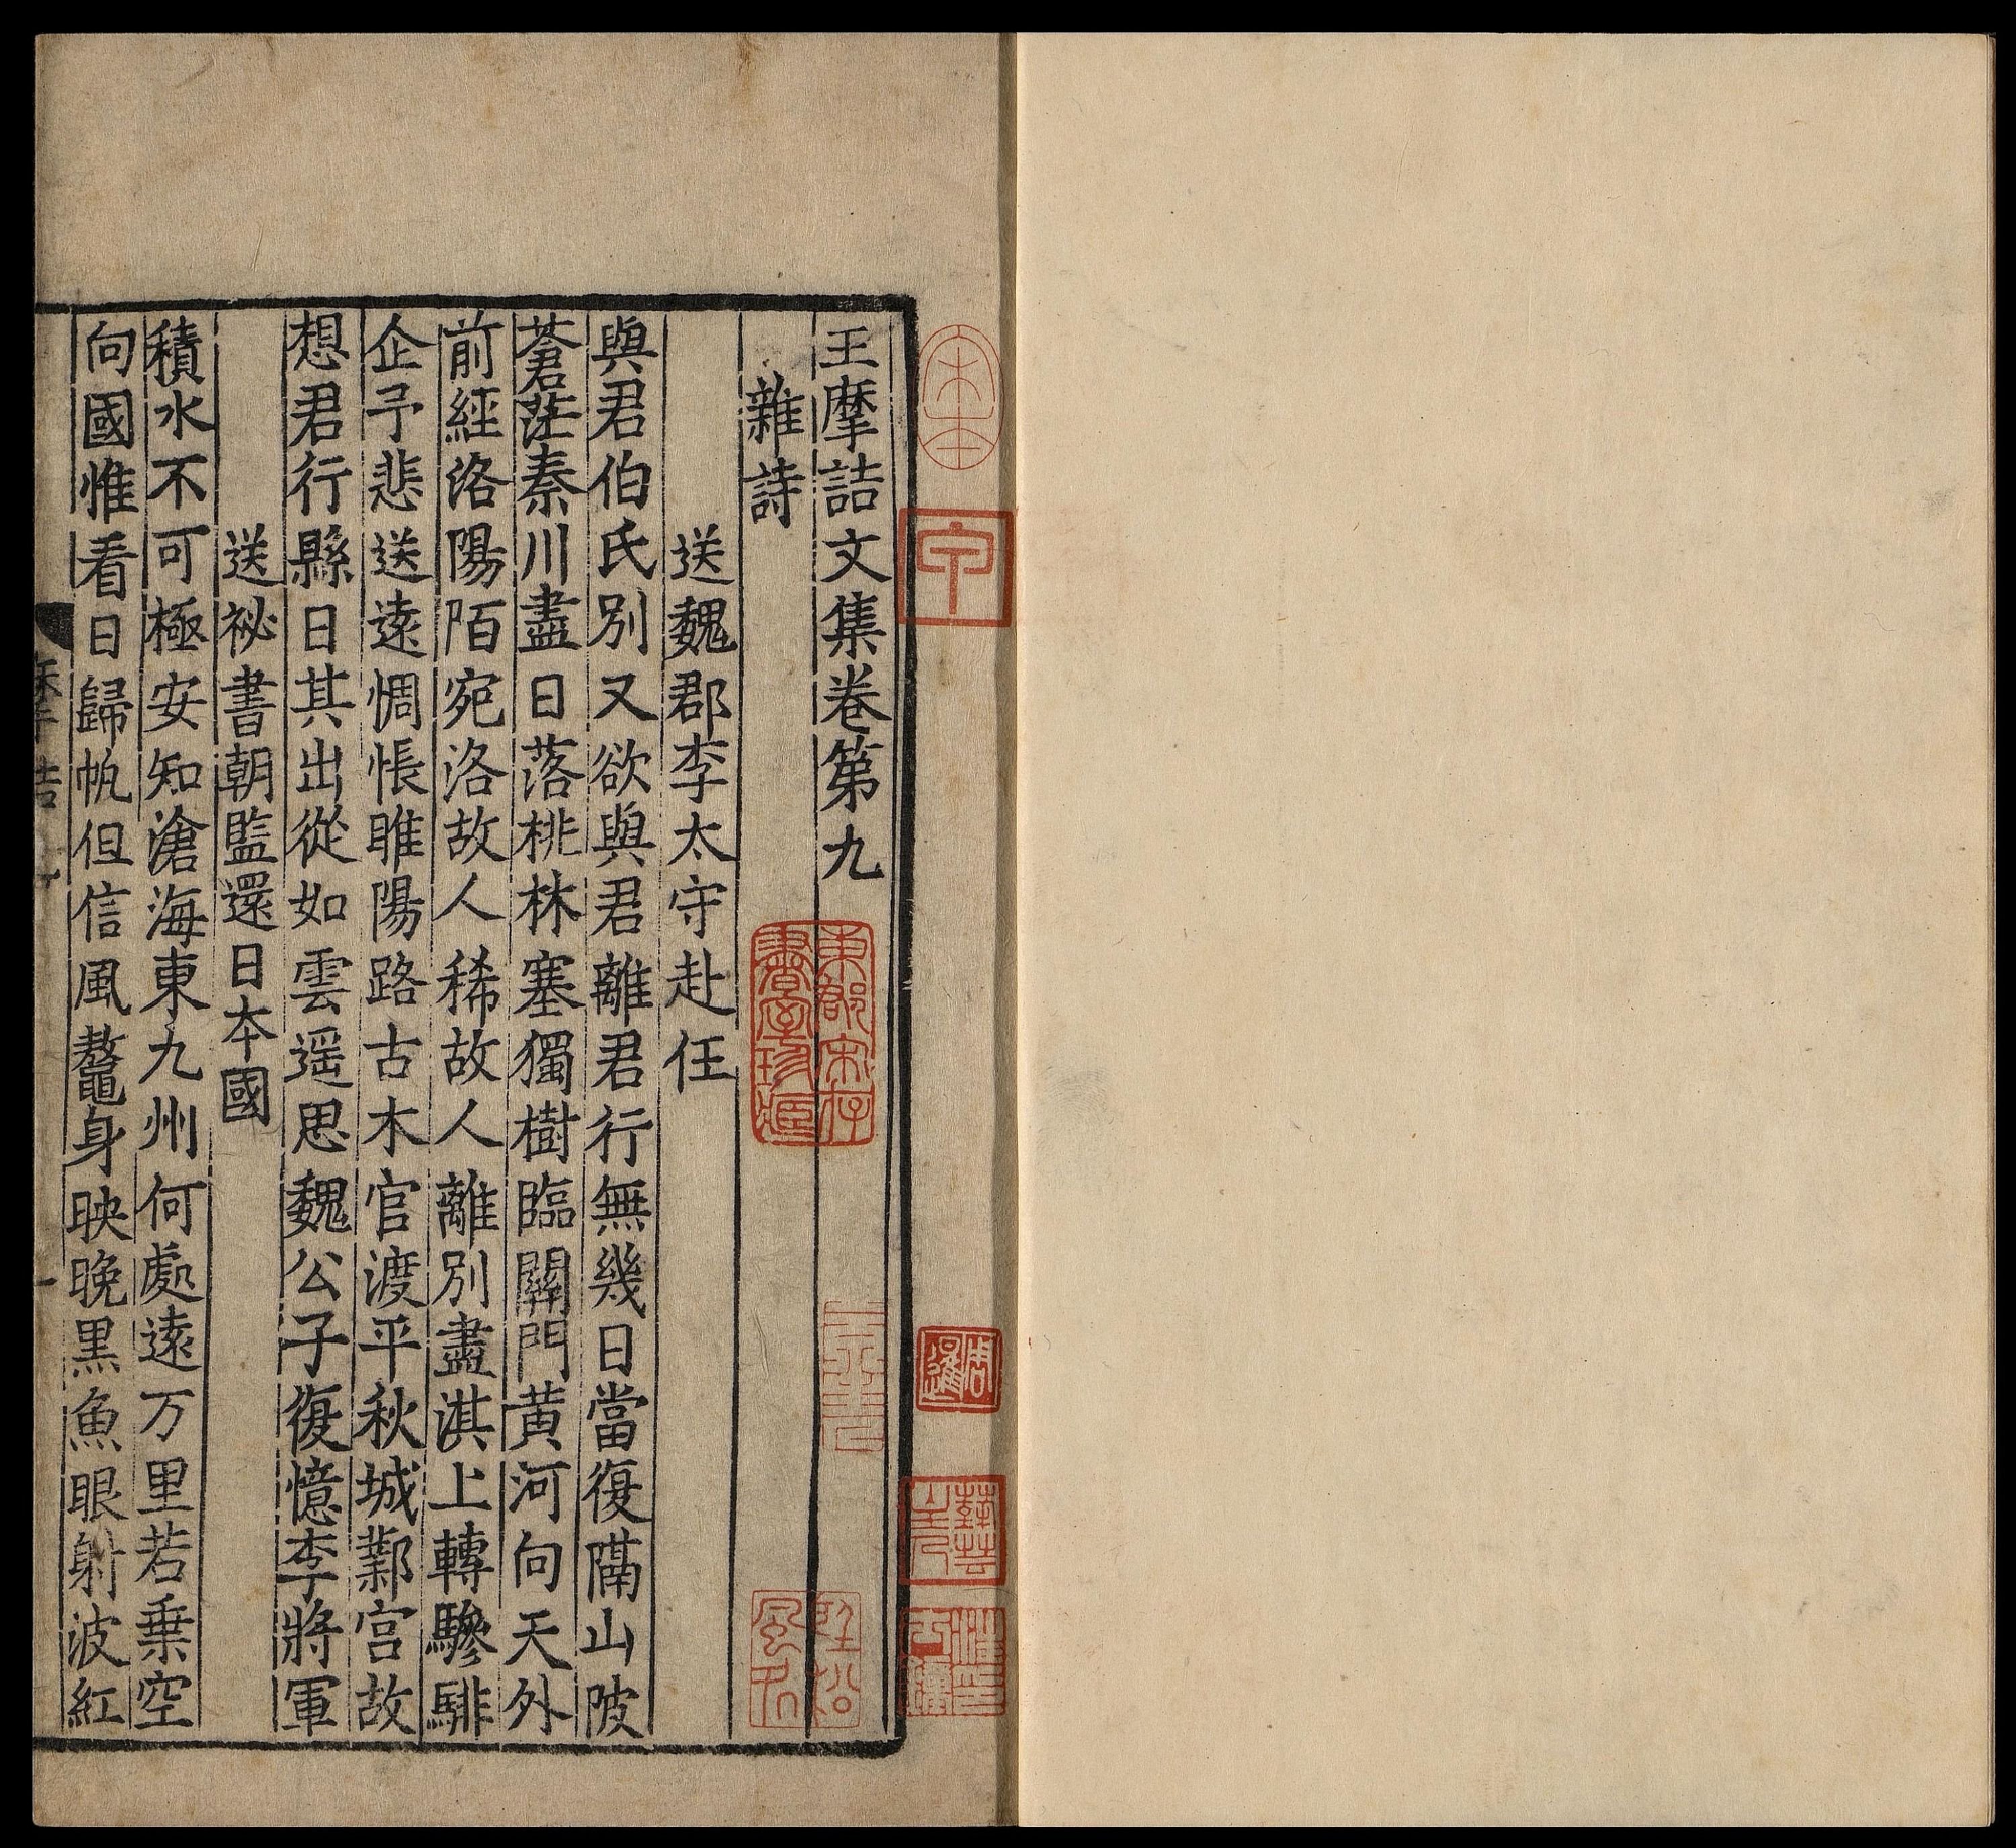 王摩詰文集卷第九
雜詩
送魏郡李太守赴任
與君伯氏別又欲與君離君行無幾日當復隔山陂
蒼茫秦川盡日落桃林塞獨樹臨關門黃河向天外
前經洛陽陌宛洛故人稀故人離別盡淇上轉驂騑
企予悲送遠惆悵睢陽路古木官渡平秋城鄴宮故
想君行縣日其出從如雲遥思魏公子復憶李將軍
送祕書朝監還日本國
積水不可極安知滄海東九州何處遠万里若乗空
向國惟看日歸帆但信風鼇身映晚黒魚眼射波紅
宋本
東郡宋存
書室珍藏
周
暹